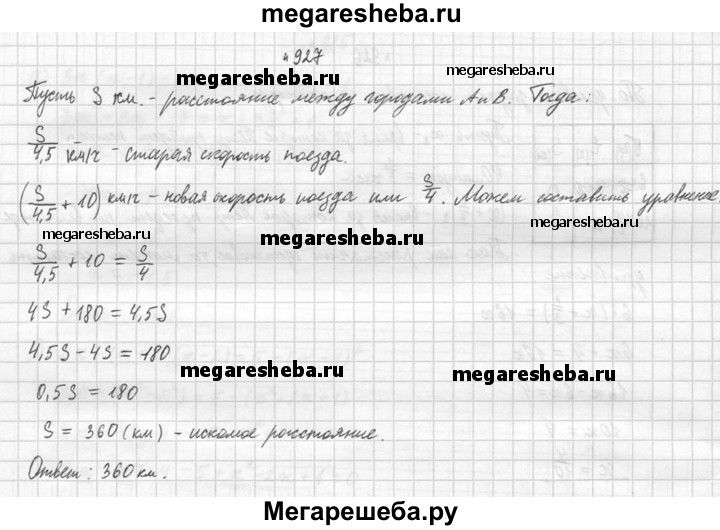 megaresheba.ru
№927
megaresheba.ru megaresheba.ru
Пусть S км. - расстояние между городами А и В. Тогда:
S/4,5 км/ч - старая скорость поезда.
(S/4,5 + 10) км/ч - новая скорость поезда или S/4. Можем составить уравнение.
megaresheba.ru megaresheba.ru megaresheba.ru
S/4,5 + 10 = S/4
4S + 180 = 4,5S
4,5S - 4S = 180
megaresheba.ru megaresheba.ru
0,5S = 180
S = 360 (км) - искомое расстояние.
Ответ: 360 км.
Мегарешеба.ру